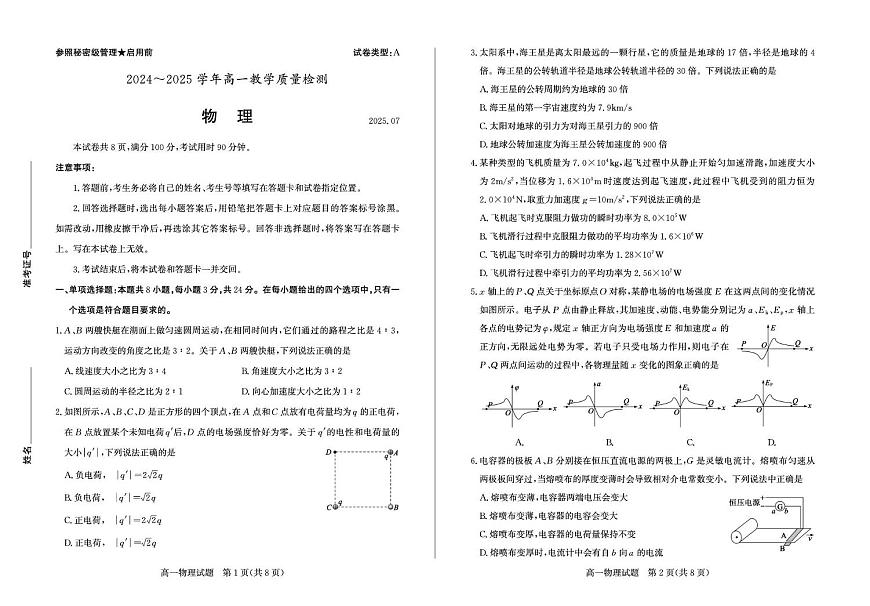 参照秘密级管理★启用前 试卷类型:A
2024～2025 学年高一教学质量检测
物 理 2025.07
本试卷共 8 页,满分 100 分,考试用时 90 分钟。
注意事项:
1. 答题前,考生务必将自己的姓名、考生号等填写在答题卡和试卷指定位置。
2. 回答选择题时,选出每小题答案后,用铅笔把答题卡上对应题目的答案标号涂黑。
如需改动,用橡皮擦干净后,再选涂其它答案标号。回答非选择题时,将答案写在答题卡
上。写在本试卷上无效。
3. 考试结束后,将本试卷和答题卡一并交回。
一、单项选择题:本题共 8 小题,每小题 3 分,共 24 分。在每小题给出的四个选项中,只有一
个选项是符合题目要求的。
1. A、B 两艘快艇在湖面上做匀速圆周运动,在相同时间内,它们通过的路程之比是 4∶3,
运动方向改变的角度之比是 3∶2。关于 A、B 两艘快艇,下列说法正确的是
A. 线速度大小之比为 3∶4 B. 角速度大小之比为 3∶2
C. 圆周运动的半径之比为 2∶1 D. 向心加速度大小之比为 1∶2
2. 如图所示,A、B、C、D 是正方形的四个顶点,在 A 点和 C 点放有电荷量均为 q 的正电荷,
在 B 点放置某个未知电荷 q′后,D 点的电场强度恰好为零。关于 q′的电性和电荷量的
大小|q′|,下列说法正确的是
A. 负电荷, |q′|=2√2q
B. 负电荷, |q′|=√2q
C. 正电荷, |q′|=2√2q
D. 正电荷, |q′|=√2q
D A
q
C q B
高一物理试题 第 1 页(共 8 页)
准考证号
姓名
3. 太阳系中,海王星是离太阳最远的一颗行星,它的质量是地球的 17 倍,半径是地球的 4
倍。海王星的公转轨道半径是地球公转轨道半径的 30 倍。下列说法正确的是
A. 海王星的公转周期约为地球的 30 倍
B. 海王星的第一宇宙速度约为 7.9km/s
C. 太阳对地球的引力为对海王星引力的 900 倍
D. 地球公转加速度为海王星公转加速度的 900 倍
4. 某种类型的飞机质量为 7.0×10⁴kg,起飞过程中从静止开始匀加速滑跑,加速度大小
为 2m/s²,当位移为 1.6×10³m 时速度达到起飞速度,此过程中飞机受到的阻力恒为
2.0×10⁴N,取重力加速度 g=10m/s²,下列说法正确的是
A. 飞机起飞时克服阻力做功的瞬时功率为 8.0×10⁵W
B. 飞机滑行过程中克服阻力做功的平均功率为 1.6×10⁶W
C. 飞机起飞时牵引力的瞬时功率为 1.28×10⁷W
D. 飞机滑行过程中牵引力的平均功率为 2.56×10⁷W
5. x 轴上的 P、Q 点关于坐标原点 O 对称,某静电场的电场强度 E 在这两点间的变化情况
如图所示。电子从 P 点由静止释放,其加速度、动能、电势能分别记为 a、Eₖ、Eₚ,x 轴上
各点的电势记为 φ,规定 x 轴正方向为电场强度 E 和加速度 a 的
正方向,无限远处电势为零。若电子只受电场力作用,则电子在
P、Q 两点间运动的过程中,各物理量随 x 变化的图象正确的是
E
P O Q x
φ a Eₖ Eₚ
P O Q x P O Q x P O Q x P O Q x
A. B. C. D.
6. 电容器的极板 A、B 分别接在恒压直流电源的两极上,G 是灵敏电流计。熔喷布匀速从
两极板间穿过,当熔喷布的厚度变薄时会导致相对介电常数变小。下列说法中正确是
A. 熔喷布变薄,电容器两端电压会变大
B. 熔喷布变薄,电容器的电容会变大
C. 熔喷布变厚,电容器的电荷量保持不变
D. 熔喷布变厚时,电流计中会有自 b 向 a 的电流
恒压电源 + −
G
a b
A
B v
高一物理试题 第 2 页(共 8 页)